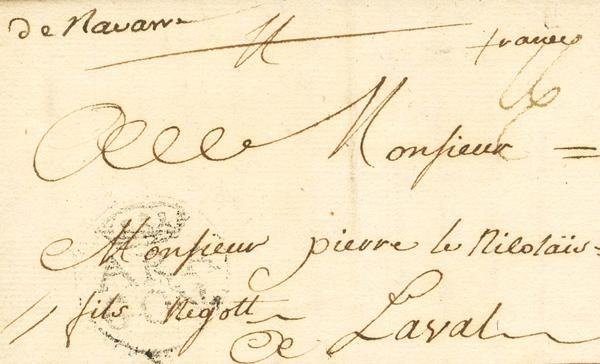 de Navarre
franco
A Monsieur =
Monsieur pierre le Nicolais
fils Negott
de Laval